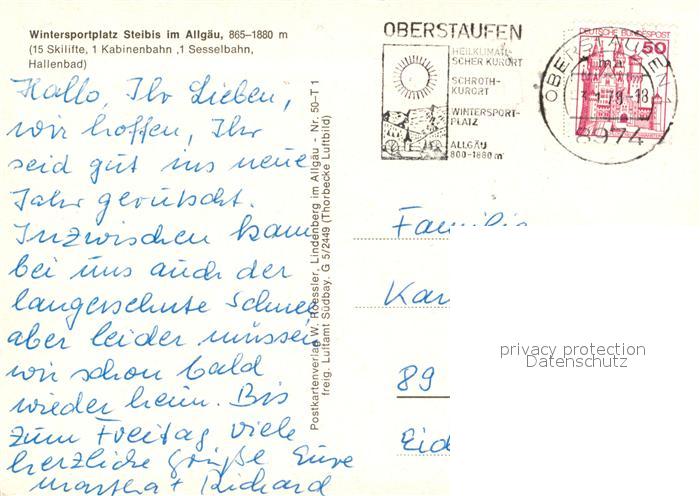 Wintersportplatz Steibis im Allgäu, 865–1880 m
(15 Skilifte, 1 Kabinenbahn ,1 Sesselbahn,
Hallenbad)
Hallo, Ihr Lieben,
wir hoffen, Ihr
seid gut ins neue
Jahr gerutscht.
Inzwischen kam
bei uns auch der
langersehnte Schnee
aber leider müssen
wir schon bald
wieder heim. Bis
zum Freitag viele
herzliche Grüße Eure
Martha + Richard
Postkartenverlag W. Roessler, Lindenberg im Allgäu - Nr. 50–T 1
freig. Luftamt Südbay. G 5/2449 (Thorbecke Luftbild)
OBERSTAUFEN
HEILKLIMATI-
SCHER KURORT
SCHROTH-
KURORT
WINTERSPORT-
PLATZ
ALLGÄU
800-1880 m
DEUTSCHE BUNDESPOST
50
OBERSTAUFEN 1
8974
Familie
Kar
89
Eid
privacy protection
Datenschutz